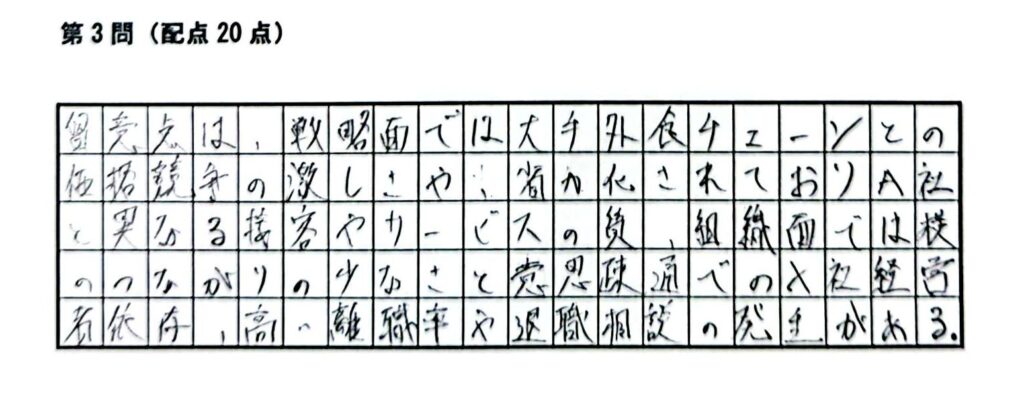 第3問（配点20点）
留意点は、戦略面では大手外食チェーンとの
価格競争の激しさや省力化されておりA社
と異なる接客やサービスの質、組織面では横
のつながりの少なさと意思疎通でのX社経営
者依存、高い離職率や退職相談の発生がある。